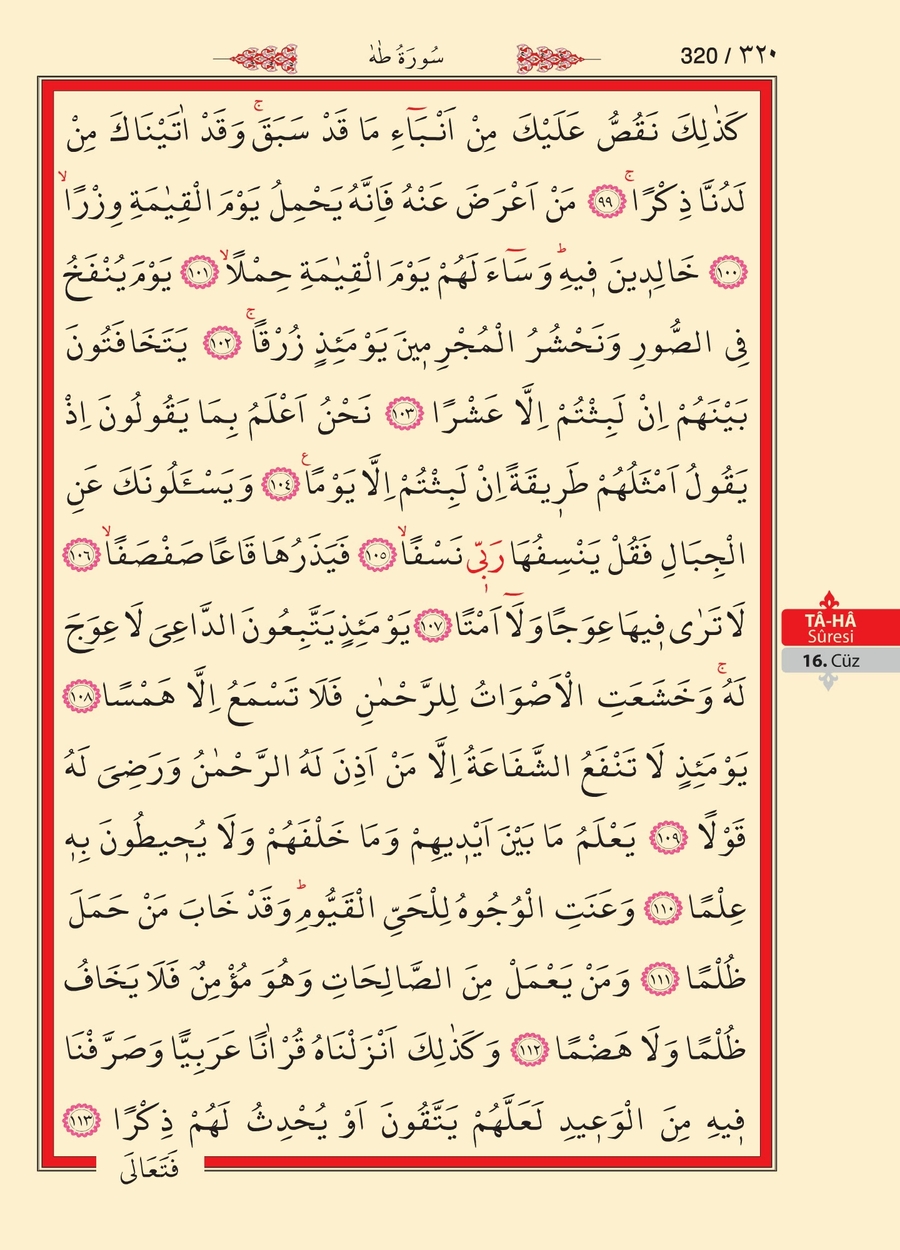 سُورَةُ طٰهٰ
320 / ٣٢٠
كَذٰلِكَ نَقُصُّ عَلَيْكَ مِنْ اَنْبَٓاءِ مَا قَدْ سَبَقَۚ وَقَدْ اٰتَيْنَاكَ مِنْ
لَدُنَّا ذِكْرًاۚ ﴿٩٩﴾ مَنْ اَعْرَضَ عَنْهُ فَاِنَّهُ يَحْمِلُ يَوْمَ الْقِيٰمَةِ وِزْرًاۙ
﴿١٠٠﴾ خَالِد۪ينَ ف۪يهِۜ وَسَٓاءَ لَهُمْ يَوْمَ الْقِيٰمَةِ حِمْلًاۙ ﴿١٠١﴾ يَوْمَ يُنْفَخُ
فِي الصُّورِ وَنَحْشُرُ الْمُجْرِم۪ينَ يَوْمَئِذٍ زُرْقًاۚ ﴿١٠٢﴾ يَتَخَافَتُونَ
بَيْنَهُمْ اِنْ لَبِثْتُمْ اِلَّا عَشْرًا ﴿١٠٣﴾ نَحْنُ اَعْلَمُ بِمَا يَقُولُونَ اِذْ
يَقُولُ اَمْثَلُهُمْ طَر۪يقَةً اِنْ لَبِثْتُمْ اِلَّا يَوْمًاع ﴿١٠٤﴾ وَيَسْـَٔلُونَكَ عَنِ
الْجِبَالِ فَقُلْ يَنْسِفُهَا رَبّ۪ي نَسْفًاۙ ﴿١٠٥﴾ فَيَذَرُهَا قَاعًا صَفْصَفًاۙ ﴿١٠٦﴾
لَا تَرٰى ف۪يهَا عِوَجًا وَلَٓا اَمْتًا ﴿١٠٧﴾ يَوْمَئِذٍ يَتَّبِعُونَ الدَّاعِيَ لَا عِوَجَ
لَهُۚ وَخَشَعَتِ الْاَصْوَاتُ لِلرَّحْمٰنِ فَلَا تَسْمَعُ اِلَّا هَمْسًا ﴿١٠٨﴾
يَوْمَئِذٍ لَا تَنْفَعُ الشَّفَاعَةُ اِلَّا مَنْ اَذِنَ لَهُ الرَّحْمٰنُ وَرَضِيَ لَهُ
قَوْلًا ﴿١٠٩﴾ يَعْلَمُ مَا بَيْنَ اَيْد۪يهِمْ وَمَا خَلْفَهُمْ وَلَا يُح۪يطُونَ بِه۪
عِلْمًا ﴿١١٠﴾ وَعَنَتِ الْوُجُوهُ لِلْحَيِّ الْقَيُّومِۜ وَقَدْ خَابَ مَنْ حَمَلَ
ظُلْمًا ﴿١١١﴾ وَمَنْ يَعْمَلْ مِنَ الصَّالِحَاتِ وَهُوَ مُؤْمِنٌ فَلَا يَخَافُ
ظُلْمًا وَلَا هَضْمًا ﴿١١٢﴾ وَكَذٰلِكَ اَنْزَلْنَاهُ قُرْاٰنًا عَرَبِيًّا وَصَرَّفْنَا
ف۪يهِ مِنَ الْوَع۪يدِ لَعَلَّهُمْ يَتَّقُونَ اَوْ يُحْدِثُ لَهُمْ ذِكْرًا ﴿١١٣﴾
فَتَعَالَى
TÂ-HÂ
Sûresi
16. Cüz